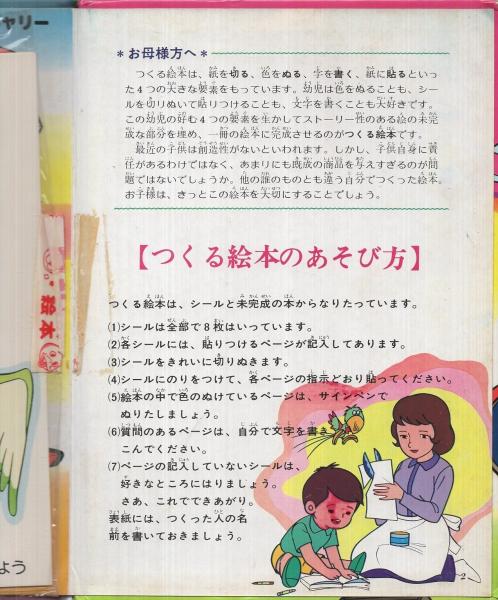 ャリー
*お母様方へ*
つくる絵本は、紙を切る、色をぬる、字を書く、紙に貼るといっ
た４つの大きな要素をもっています。幼児は色をぬることも、シー
ルを切りぬいて貼りつけることも、文字を書くことも大好きです。
この幼児の好む４つの要素を生かしてストーリー性のある絵の未完
成な部分を埋め、一冊の絵本に完成させるのがつくる絵本です。
最近の子供は創造性がないといわれます。しかし、子供自身に責
任があるわけではなく、あまりにも既成の商品を与えすぎるのが問
題ではないでしょうか。他の誰のものとも違う自分でつくった絵本。
お子様は、きっとこの絵本を大切にすることでしょう。
【つくる絵本のあそび方】
つくる絵本は、シールと未完成の本からなりたっています。
(1)シールは全部で８枚はいっています。
(2)各シールには、貼りつけるページが記入してあります。
(3)シールをきれいに切りぬきます。
(4)シールにのりをつけて、各ページの指示どおり貼ってください。
(5)絵本の中で色のぬけているページは、サインペンで
ぬりたしましょう。
(6)質問のあるページは、自分で文字を書き
こんでください。
(7)ページの記入していないシールは、
好きなところにはりましょう。
さあ、これでできあがり。
表紙には、つくった人の名
前を書いておきましょう。
絵本
よう
2